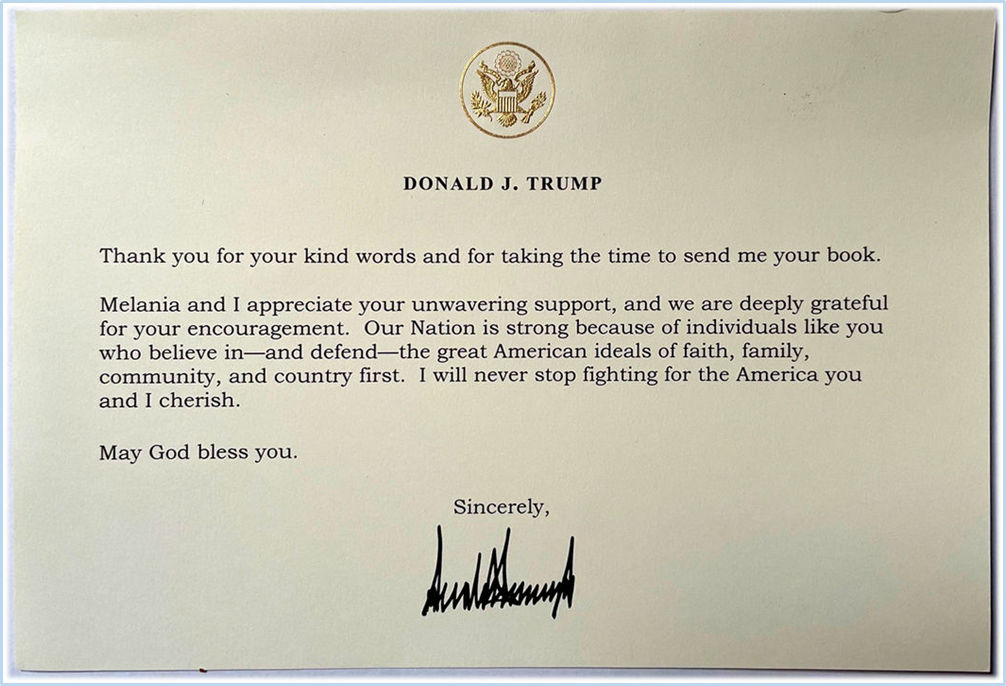 DONALD J. TRUMP
Thank you for your kind words and for taking the time to send me your book.
Melania and I appreciate your unwavering support, and we are deeply grateful
for your encouragement.  Our Nation is strong because of individuals like you
who believe in—and defend—the great American ideals of faith, family,
community, and country first.  I will never stop fighting for the America you
and I cherish.
May God bless you.
Sincerely,